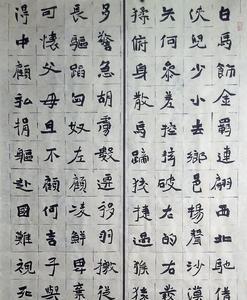 白馬飾金羈連翩西北馳借
俠兒少小去鄉邑揚聲沙漠
矢何參差控弦破左的右發
猱俯身散馬蹄狡捷過猴猿
多警急胡虜數遷移羽檄從
長驅蹈匈奴左顧陵鮮卑棄
可懷父母且不顧何言子與
得中顧私捐軀赴國難視死